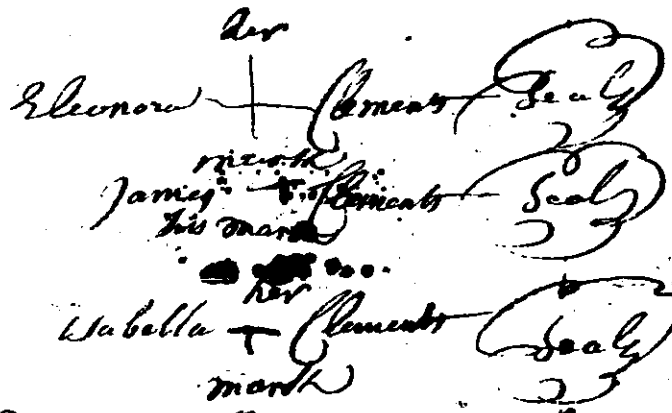 her
Eleonora Clements Seal
mark
James Clements Seal
his mark
her
Isabella Clements Seal
mark